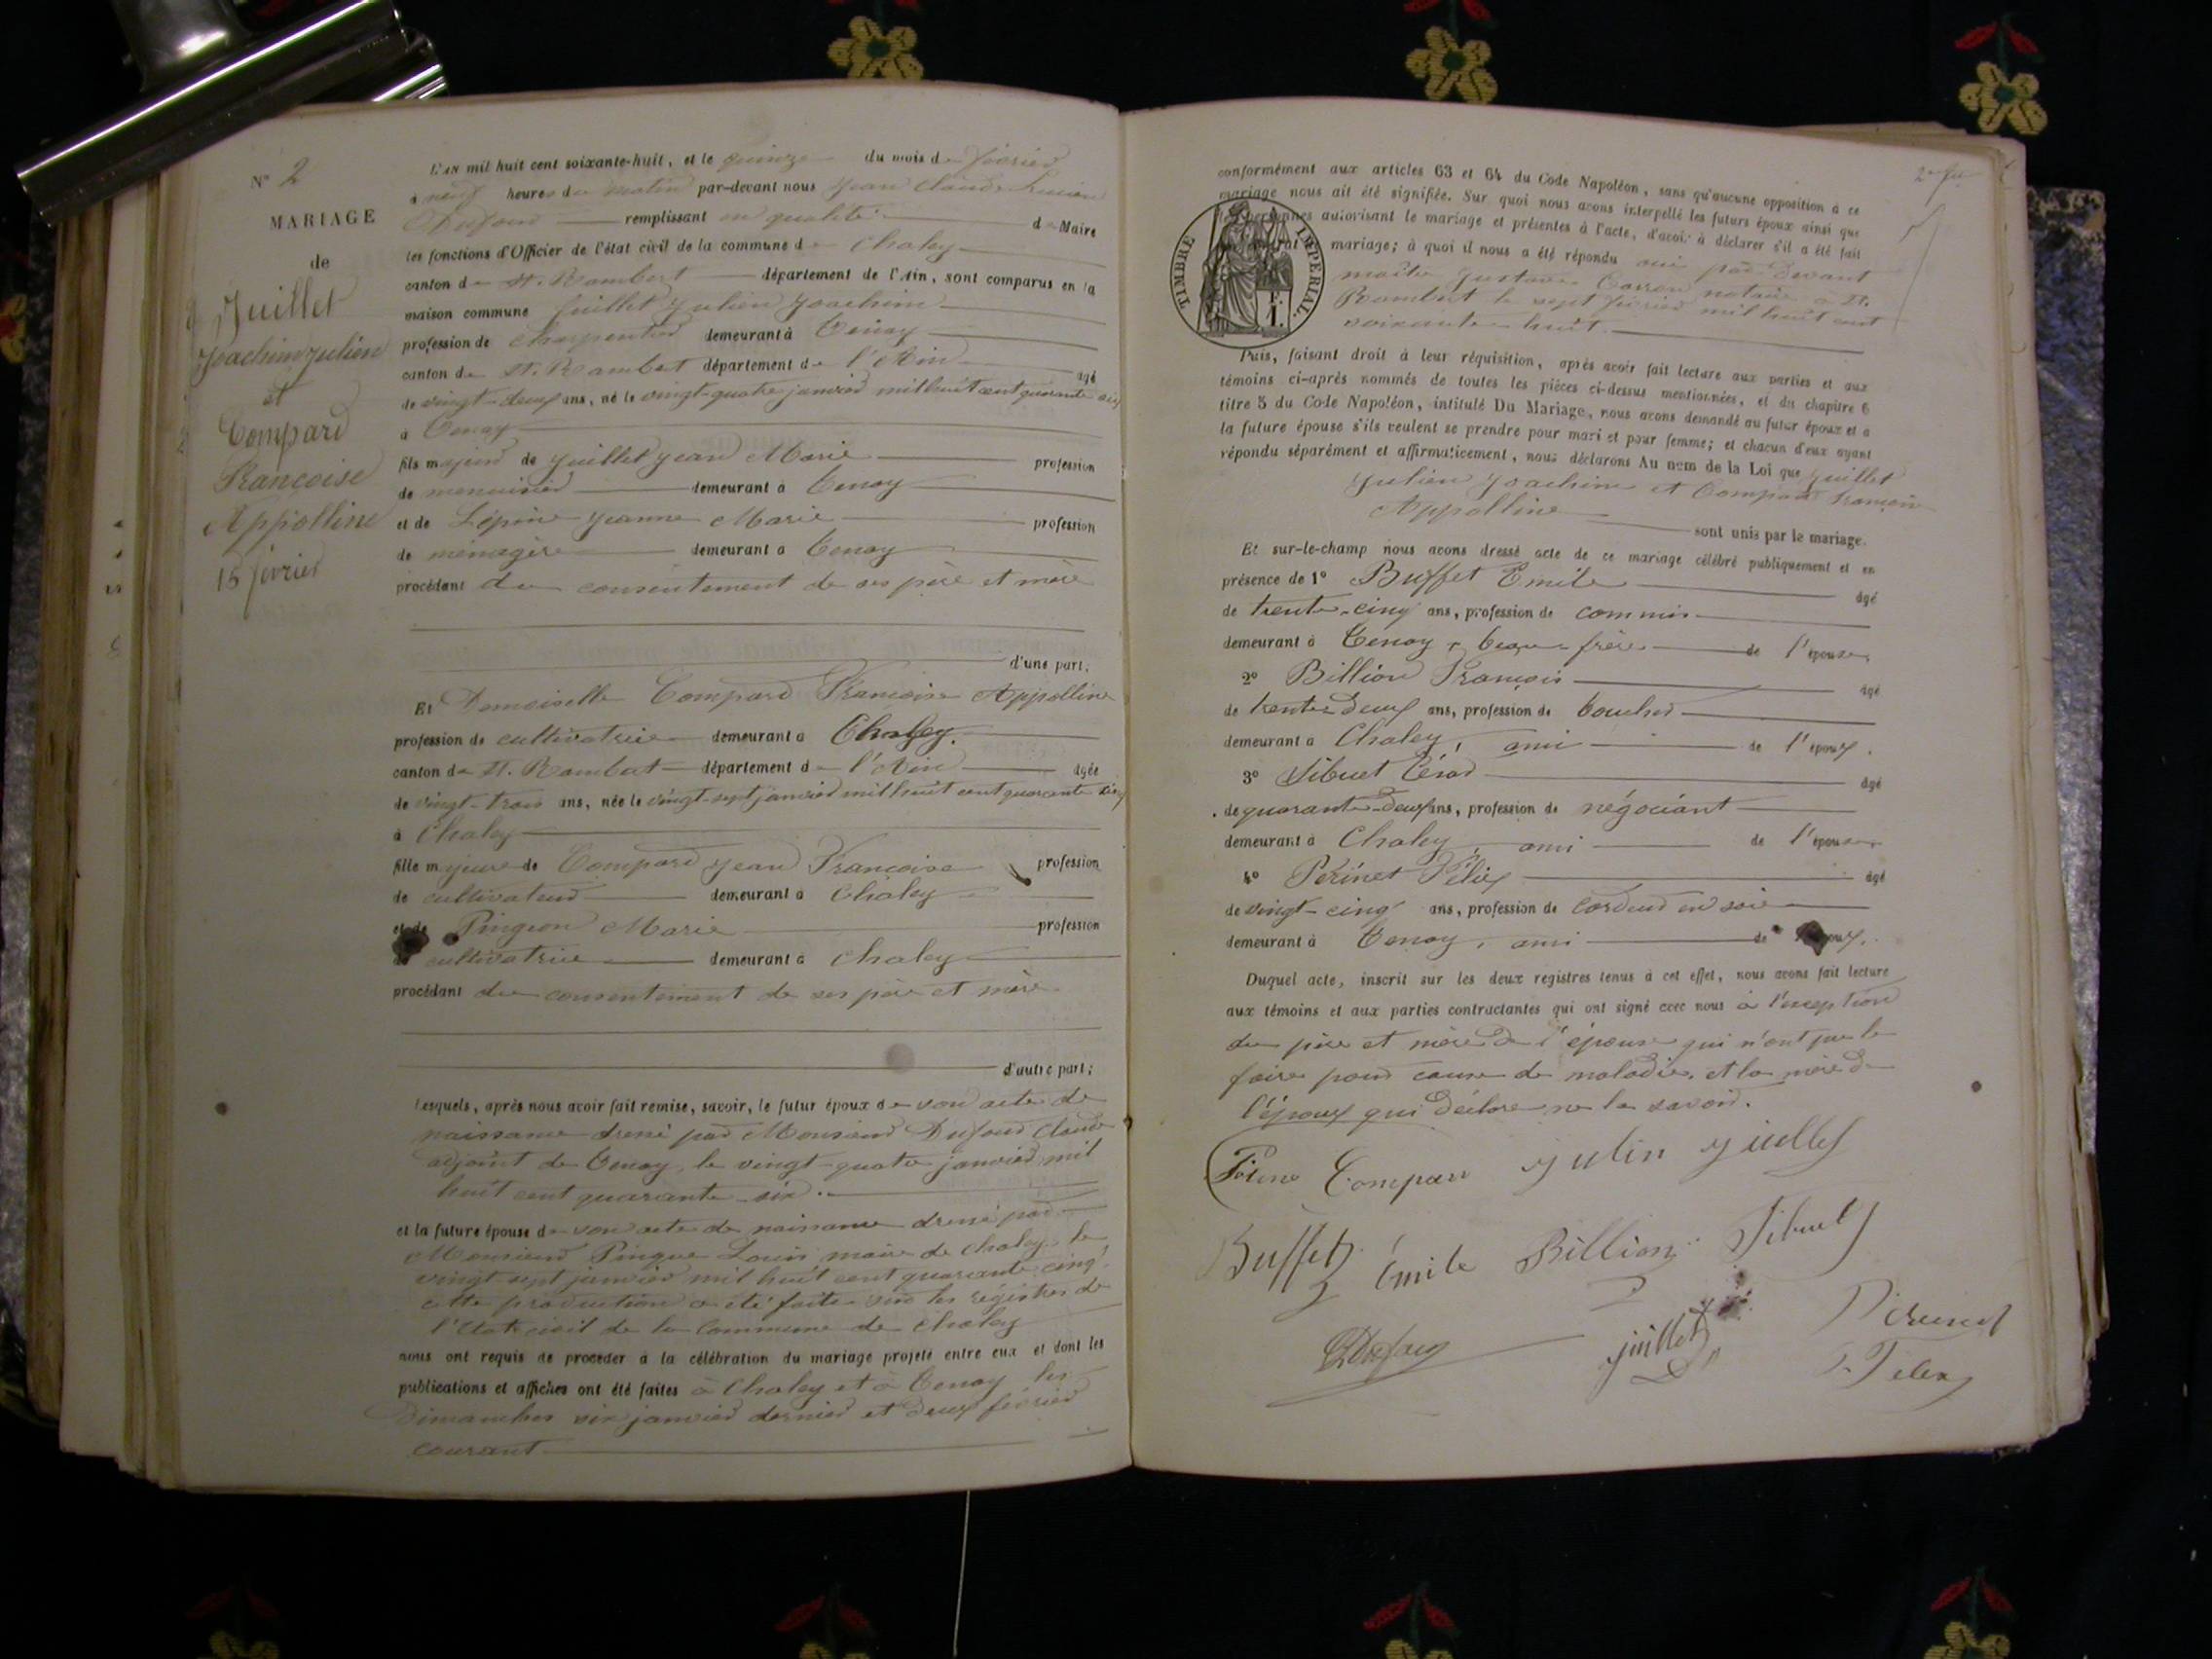 N° 2
MARIAGE
de
Juillet
Joachim Julien
et
Compard
Françoise
Appolline
15 février
L'AN mil huit cent soixante-huit, et le quinze du mois de février
à neuf heures du matin par-devant nous Jean Claude Lucien
Dufour remplissant en qualité de Maire
les fonctions d'Officier de l'état civil de la commune de Chaley
canton de St. Rambert département de l'Ain, sont comparus en la
maison commune Juillet Julien Joachim
profession de charpentier demeurant à Tenay
canton de St. Rambert département de l'Ain âgé
de vingt-deux ans, né le vingt-quatre janvier mil huit cent quarante six
à Tenay
fils majeur de Juillet Jean Marie profession
de menuisier demeurant à Tenay
et de Lépine Jeanne Marie profession
de ménagère demeurant à Tenay
procédant du consentement de ses père et mère
d'une part,
Et Demoiselle Compard Françoise Appolline
profession de cultivatrice demeurant à Chaley.
canton de St. Rambert département de l'Ain âgée
de vingt-trois ans, née le vingt-sept janvier mil huit cent quarante cinq
à Chaley
fille majeure de Compard Jean Françoise profession
de cultivateur demeurant à Chaley
et de Pingeon Marie profession
de cultivatrice demeurant à Chaley
procédant du consentement de ses père et mère
d'autre part;
Lesquels, après nous avoir fait remise, savoir, le futur époux de son acte de
naissance dressé par Monsieur Dufour Claude
adjoint de Tenay, le vingt-quatre janvier mil
huit cent quarante-six.
et la future épouse de son acte de naissance dressé par
Monsieur Pingue Louis maire de Chaley le
vingt sept janvier mil huit cent quarante cinq.
cette production a été faite sur les régistres de
l'Etat civil de la Commune de Chaley
nous ont requis de procéder à la célébration du mariage projeté entre eux et dont les
publications et affiches ont été faites à Chaley et à Tenay les
dimanches six janvier dernier et deux février
courant
2e fe
conformément aux articles 63 et 64 du Code Napoléon, sans qu'aucune opposition à ce
mariage nous ait été signifiée. Sur quoi nous avons interpellé les futurs époux ainsi que
les personnes autorisant le mariage et présentes à l'acte, d'avoir à déclarer s'il a été fait
mariage; à quoi il nous a été répondu oui par-devant
maître Gustave Carron notaire à St.
Rambert le sept février mil huit cent
soixante-huit.
TIMBRE IMPÉRIAL
1 F.
Puis, faisant droit à leur réquisition, après avoir fait lecture aux parties et aux
témoins ci-après nommés de toutes les pièces ci-dessus mentionnées, et du chapitre 6
titre 5 du Code Napoléon, intitulé Du Mariage, nous avons demandé au futur époux et à
la future épouse s'ils veulent se prendre pour mari et pour femme; et chacun d'eux ayant
répondu séparément et affirmativement, nous déclarons Au nom de la Loi que Juillet
Julien Joachim et Compard Françoise
Appolline
sont unis par le mariage.
Et sur-le-champ nous avons dressé acte de ce mariage célébré publiquement et en
présence de 1° Buffet Emile âgé
de trente-cinq ans, profession de commis
demeurant à Tenay, beau-frère de l'épouse,
2° Billion François âgé
de trente-deux ans, profession de boucher
demeurant à Chaley, ami de l'époux.
3° Sibuet Cérad âgé
de quarante-deux ans, profession de négociant
demeurant à Chaley, ami de l'épouse
4° Périnet Félix âgé
de vingt-cinq ans, profession de cordeur en soie
demeurant à Tenay, ami de l'époux.
Duquel acte, inscrit sur les deux registres tenus à cet effet, nous avons fait lecture
aux témoins et aux parties contractantes qui ont signé avec nous à l'exception
du père et mère de l'épouse qui n'ont pu le
faire pour cause de maladie. et la mère de
l'époux qui déclare ne le savoir.
Compard Julin Juillet
Buffet Emile Billion Sibuet
Dufour juillet Périnet
Félix